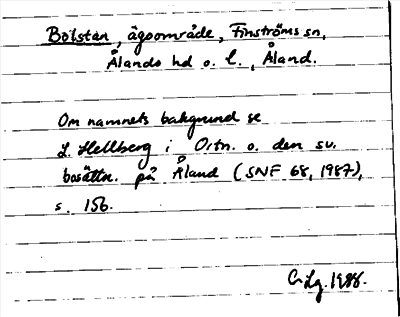 Bölstan, ägoområde, Finströms sn,
Ålands hd o. l., Åland.
Om namnets bakgrund se
L. Hellberg i Ortn. o. den sv.
bosättn. på Åland (SNF 68, 1987),
s. 156.
C. Lg. 1988.